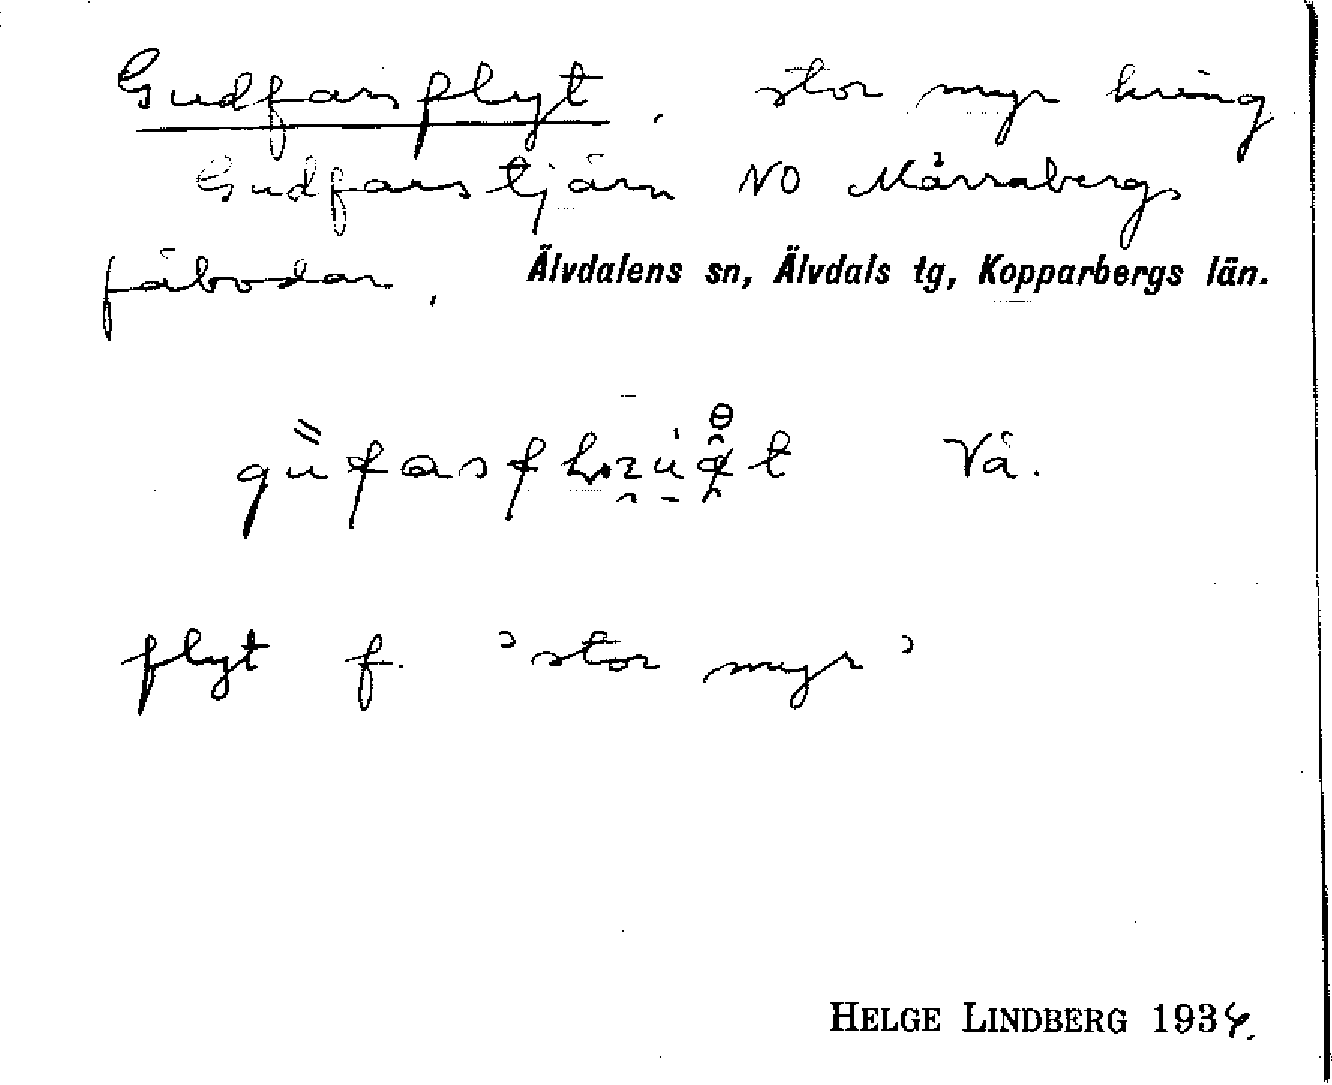 Gudfarsflyt, stor myr kring
Gudfarstjärn NO Mårrabergs
fäbodar, Älvdalens sn, Älvdals tg, Kopparbergs län.
Vå.
flyt f. 'stor myr'
HELGE LINDBERG 1934.